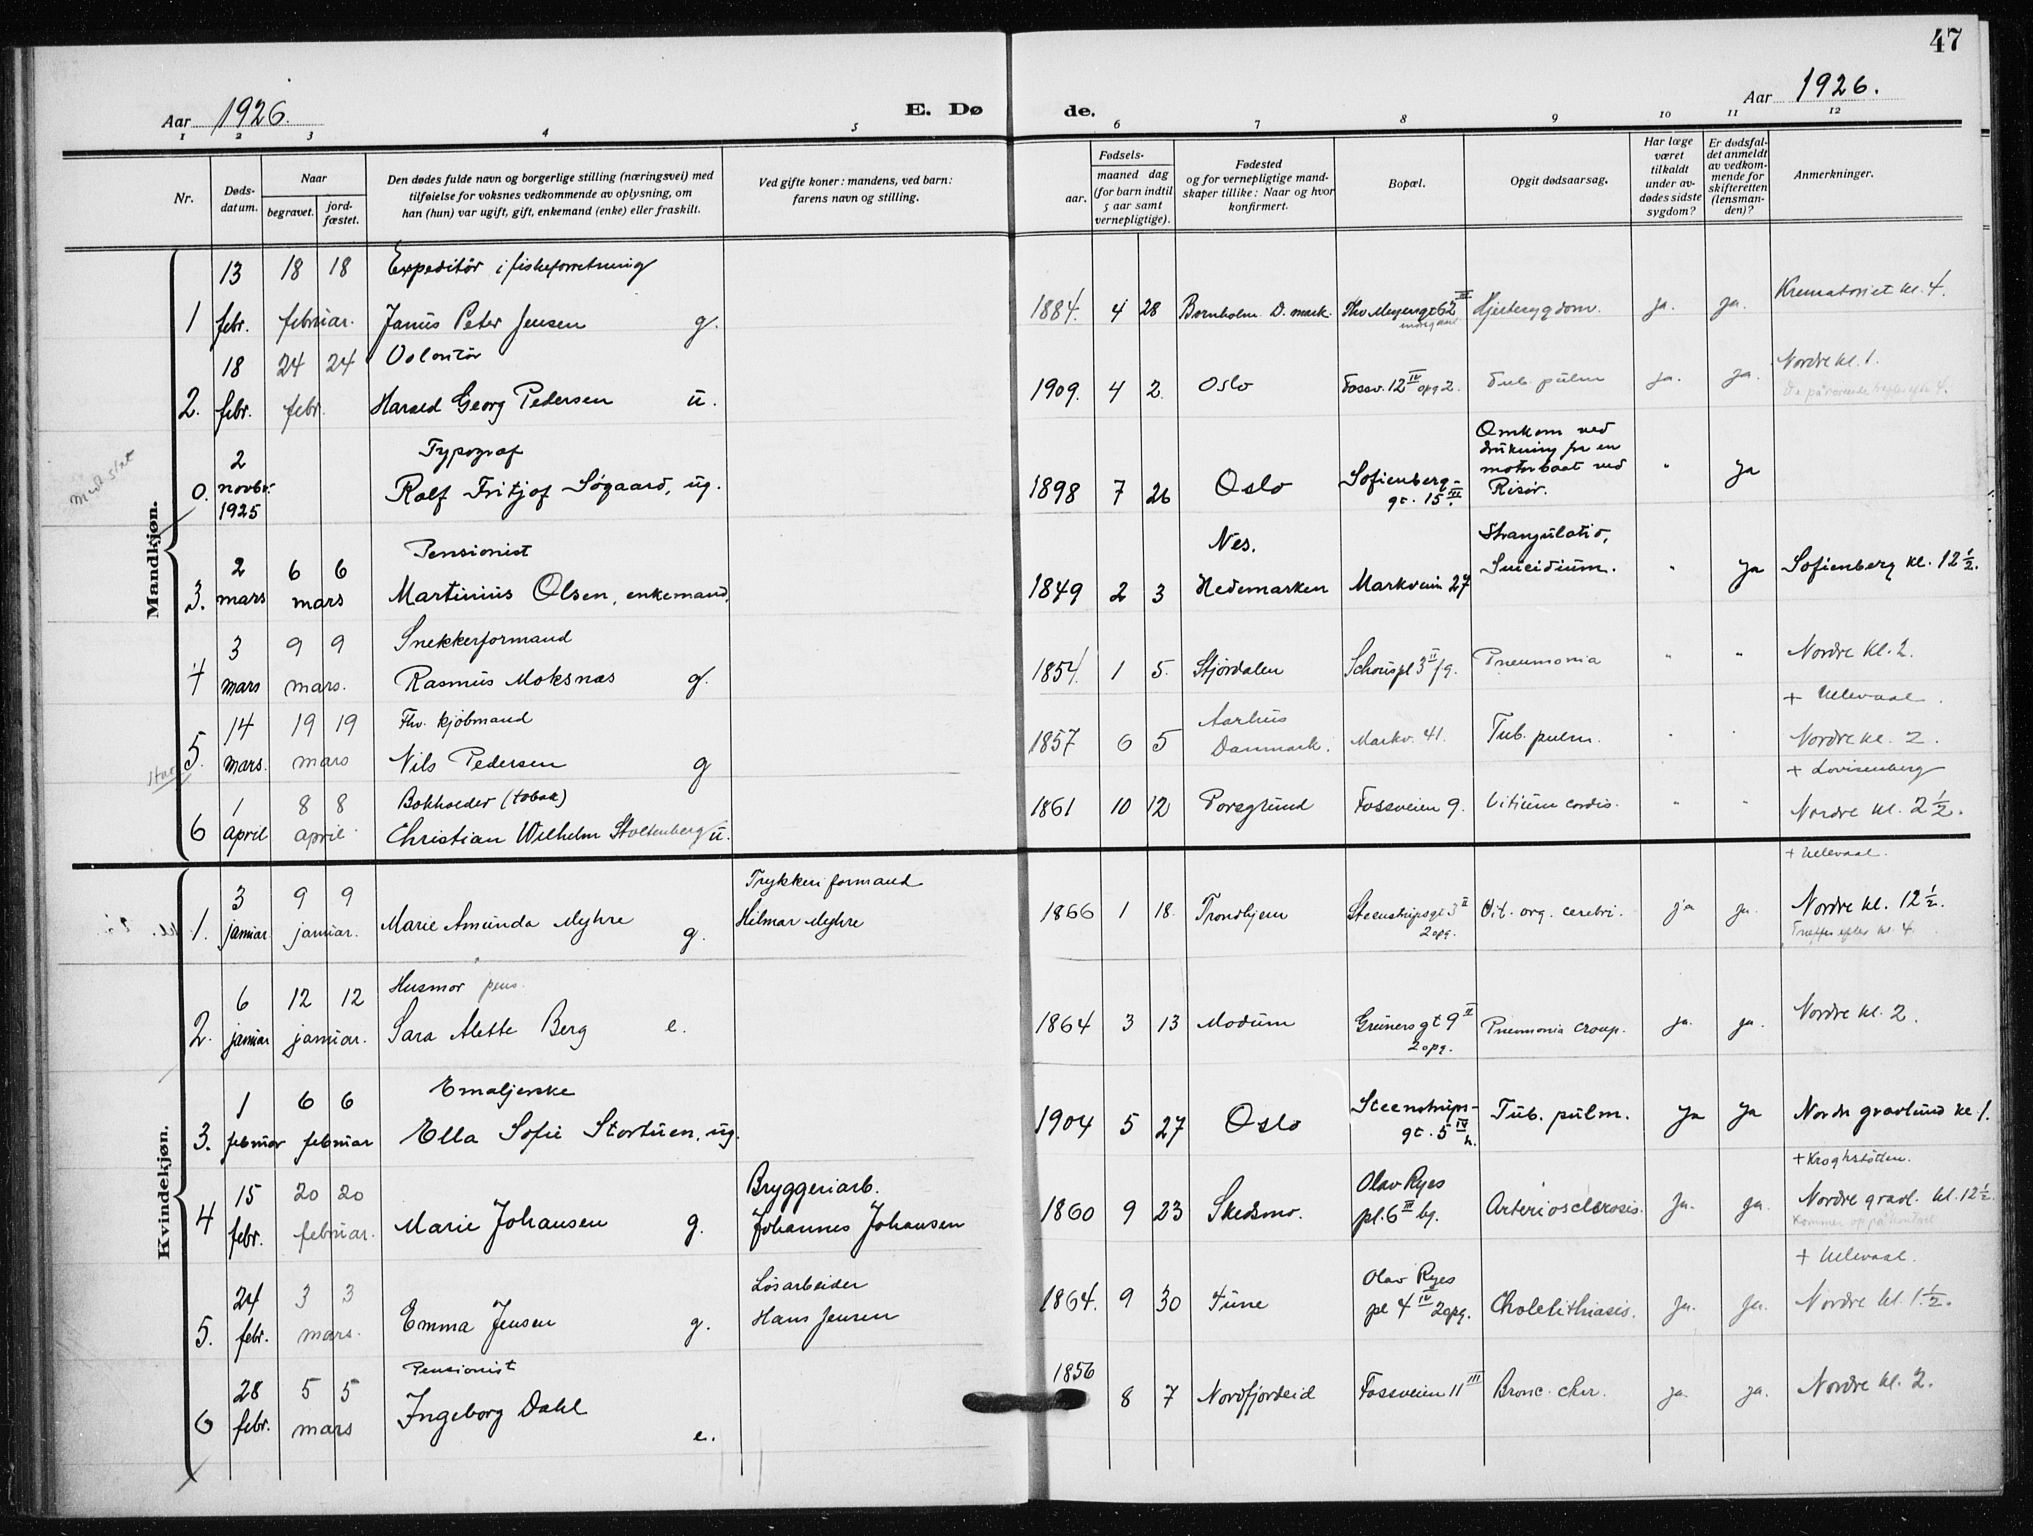 47
Aar 1926.
E. Dø
de.
Aar 1926.
1 2 3 4 5 6 7 8 9 10 11 12
Nr.
Døds-
datum.
Naar
begravet.
jord-
fæstet.
Den dødes fulde navn og borgerlige stilling (næringsvei) med
tilføielse for voksnes vedkommende av oplysning, om
han (hun) var ugift, gift, enkemand (enke) eller fraskilt.
Ved gifte koner: mandens, ved barn:
farens navn og stilling.
Fødsels-
aar.
maaned dag
(for barn indtil
5 aar samt
vernepligtige).
Fødested
og for vernepligtige mand-
skaper tillike: Naar og hvor
konfirmert.
Bopæl.
Opgit dødsaarsag.
Har læge
været
tilkaldt
under av-
dødes sidste
sygdom?
Er dødsfal-
det anmeldt
av vedkom-
mende for
skifteretten
(lensman-
den)?
Anmerkninger.
Mandkjøn.
13 18 18 Expeditør i fiskeforretning
1 febr. februar. Janus Peter Jensen g. 1884. 4 28 Bornholm D. mark. Thv Meyersgt 62 III Hjertesygdom. ja. ja. Krematoriet kl. 4.
18 24 24 Volontør
2. febr. febr. Harald Georg Pedersen u. 1909. 4 2. Oslo Fossv. 12 IV opg 2. Tub. pulm ja. ja. Nordre kl. 1.
2 Typograf
0. novbr. 1925 Rolf Fritjof Søgaard, ug. 1898 7 26 Oslo Sofienberg-
gt. 15 III.
Omkom ved
drukning fra en
motorbaat ved
Risør.
" ja
2 6 6 Pensionist
3. mars mars Martinius Olsen, enkemand, 1849 2 3 Nes.
Hedemarken Markveien 27
Strangulatio,
Suicidium.
" ja Sofienberg kl. 12 ½.
3 9 9 Snekkerformand
4 mars mars. Rasmus Moksnas g. 1854. 1 5. Stjørdalen Schouspl 3 II fg. Pneumonia " " Nordre kl. 2.
+ Ullevaal.
14 19 19 Fhv. kjøbmand
5. mars. mars Nils Pedersen g 1857 6 5 Aarhus
Danmark. Markv. 41. Tub. pulm. " " Nordre kl. 2.
+ Lovisenberg
1 8 8 Bokholder (tobak)
6 april april. Christian Wilhelm Stoltenberg u. 1861 10 12 Porsgrund Fossveien 9. Vitium cordis. " " Nordre kl. 2 ½.
+ Ullevaal.
Kvindekjøn.
3 9 9 Trykkeriformand
1. januar januar. Marie Amunda Myhre g. Hilmar Myhre 1866 1 18. Trondhjem Steenstrupsgt 3 II
2 opg. Vit. org. cerebri. ja ja. Nordre kl. 12 ½.
Træffes efter kl. 4.
6 12 12 Husmor pens.
2. januar januar. Sara Alette Berg e. 1864 3 13 Modum Grünersgt 9 II
2 opg. Pneumonia croup. ja. ja. Nordre kl. 2.
1 6 6 Emaljerske
3. februar februar Ella Sofie Stortuen, ug. 1904 5 27 Oslo Steenstrups-
gt. 5 IV h. Tub. pulm. ja ja Nordr gravlund kl. 1.
+ Kroghstøtten.
15 20 20 Bryggeriarb.
4 febr. februar. Marie Johansen g. Johannes Johansen 1860 9 23 Skedsmo. Olav Ryes
pl. 6 III bg. Arteriosclerosis. ja. ja. Nordre gravl. kl. 12 ½.
Kommer op på kontoret
+ Ullevaal.
24 3 3 Løsarbeider
5. febr. mars. Emma Jensen g. Hans Jensen 1864. 9 30 Tune Olav Ryes
pl 4 IV 2 opg. Cholelithiasis. ja. ja. Nordre kl. 1 ½.
28 5 5 Pensionist
6 febr. mars Ingeborg Dahl e. 1856 8 7 Nordfjordeid Fossveien 11 III Bronc. chr. ja. ja. Nordre kl. 2.